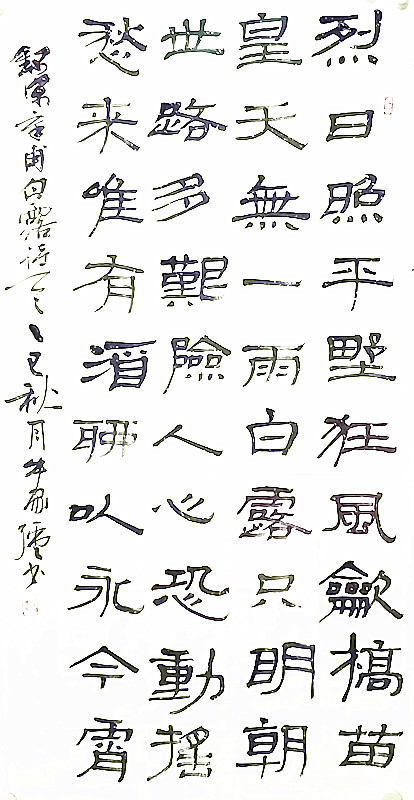 烈日照平野狂風龡槁苗
皇天無一雨白露只明朝
世路多艱險人心恐動摇
愁来唯有酒聊以永今霄
錄宋章甫白露诗一乙巳秋月书